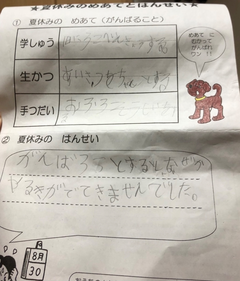 ★夏休みのめあてとはんせい★
① 夏休みの めあて（がんばること）
学しゅう
生かつ
あいさつをちゃんとする
手つだい
めあて に
むかって
がんばる
ワン！！
② 夏休みの はんせい
がんばろうとすると、なぜか
やるきがでてきませんでした。
8月
30